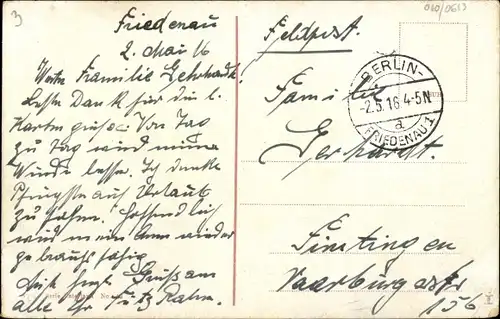 3
Friedenau
2. Mai 16
Werte Familie Gerhardt.
Besten Dank für die l.
Karten grüße. Von Tag
zu Tag wird meine
Wunde besser. Ich denke
Pfingsten auf Urlaub
zu fahren. Hoffentlich
wird mein Arm wieder
gebrauchsfähig
Grüß an
alle Ihr Fritz Rahn.
Feldpost.
010/0613
BERLIN-
-2.5.16 4-5N
a
FRIEDENAU 1
Familie
Gerhardt.
Fintingen
Saarburgerstr
156